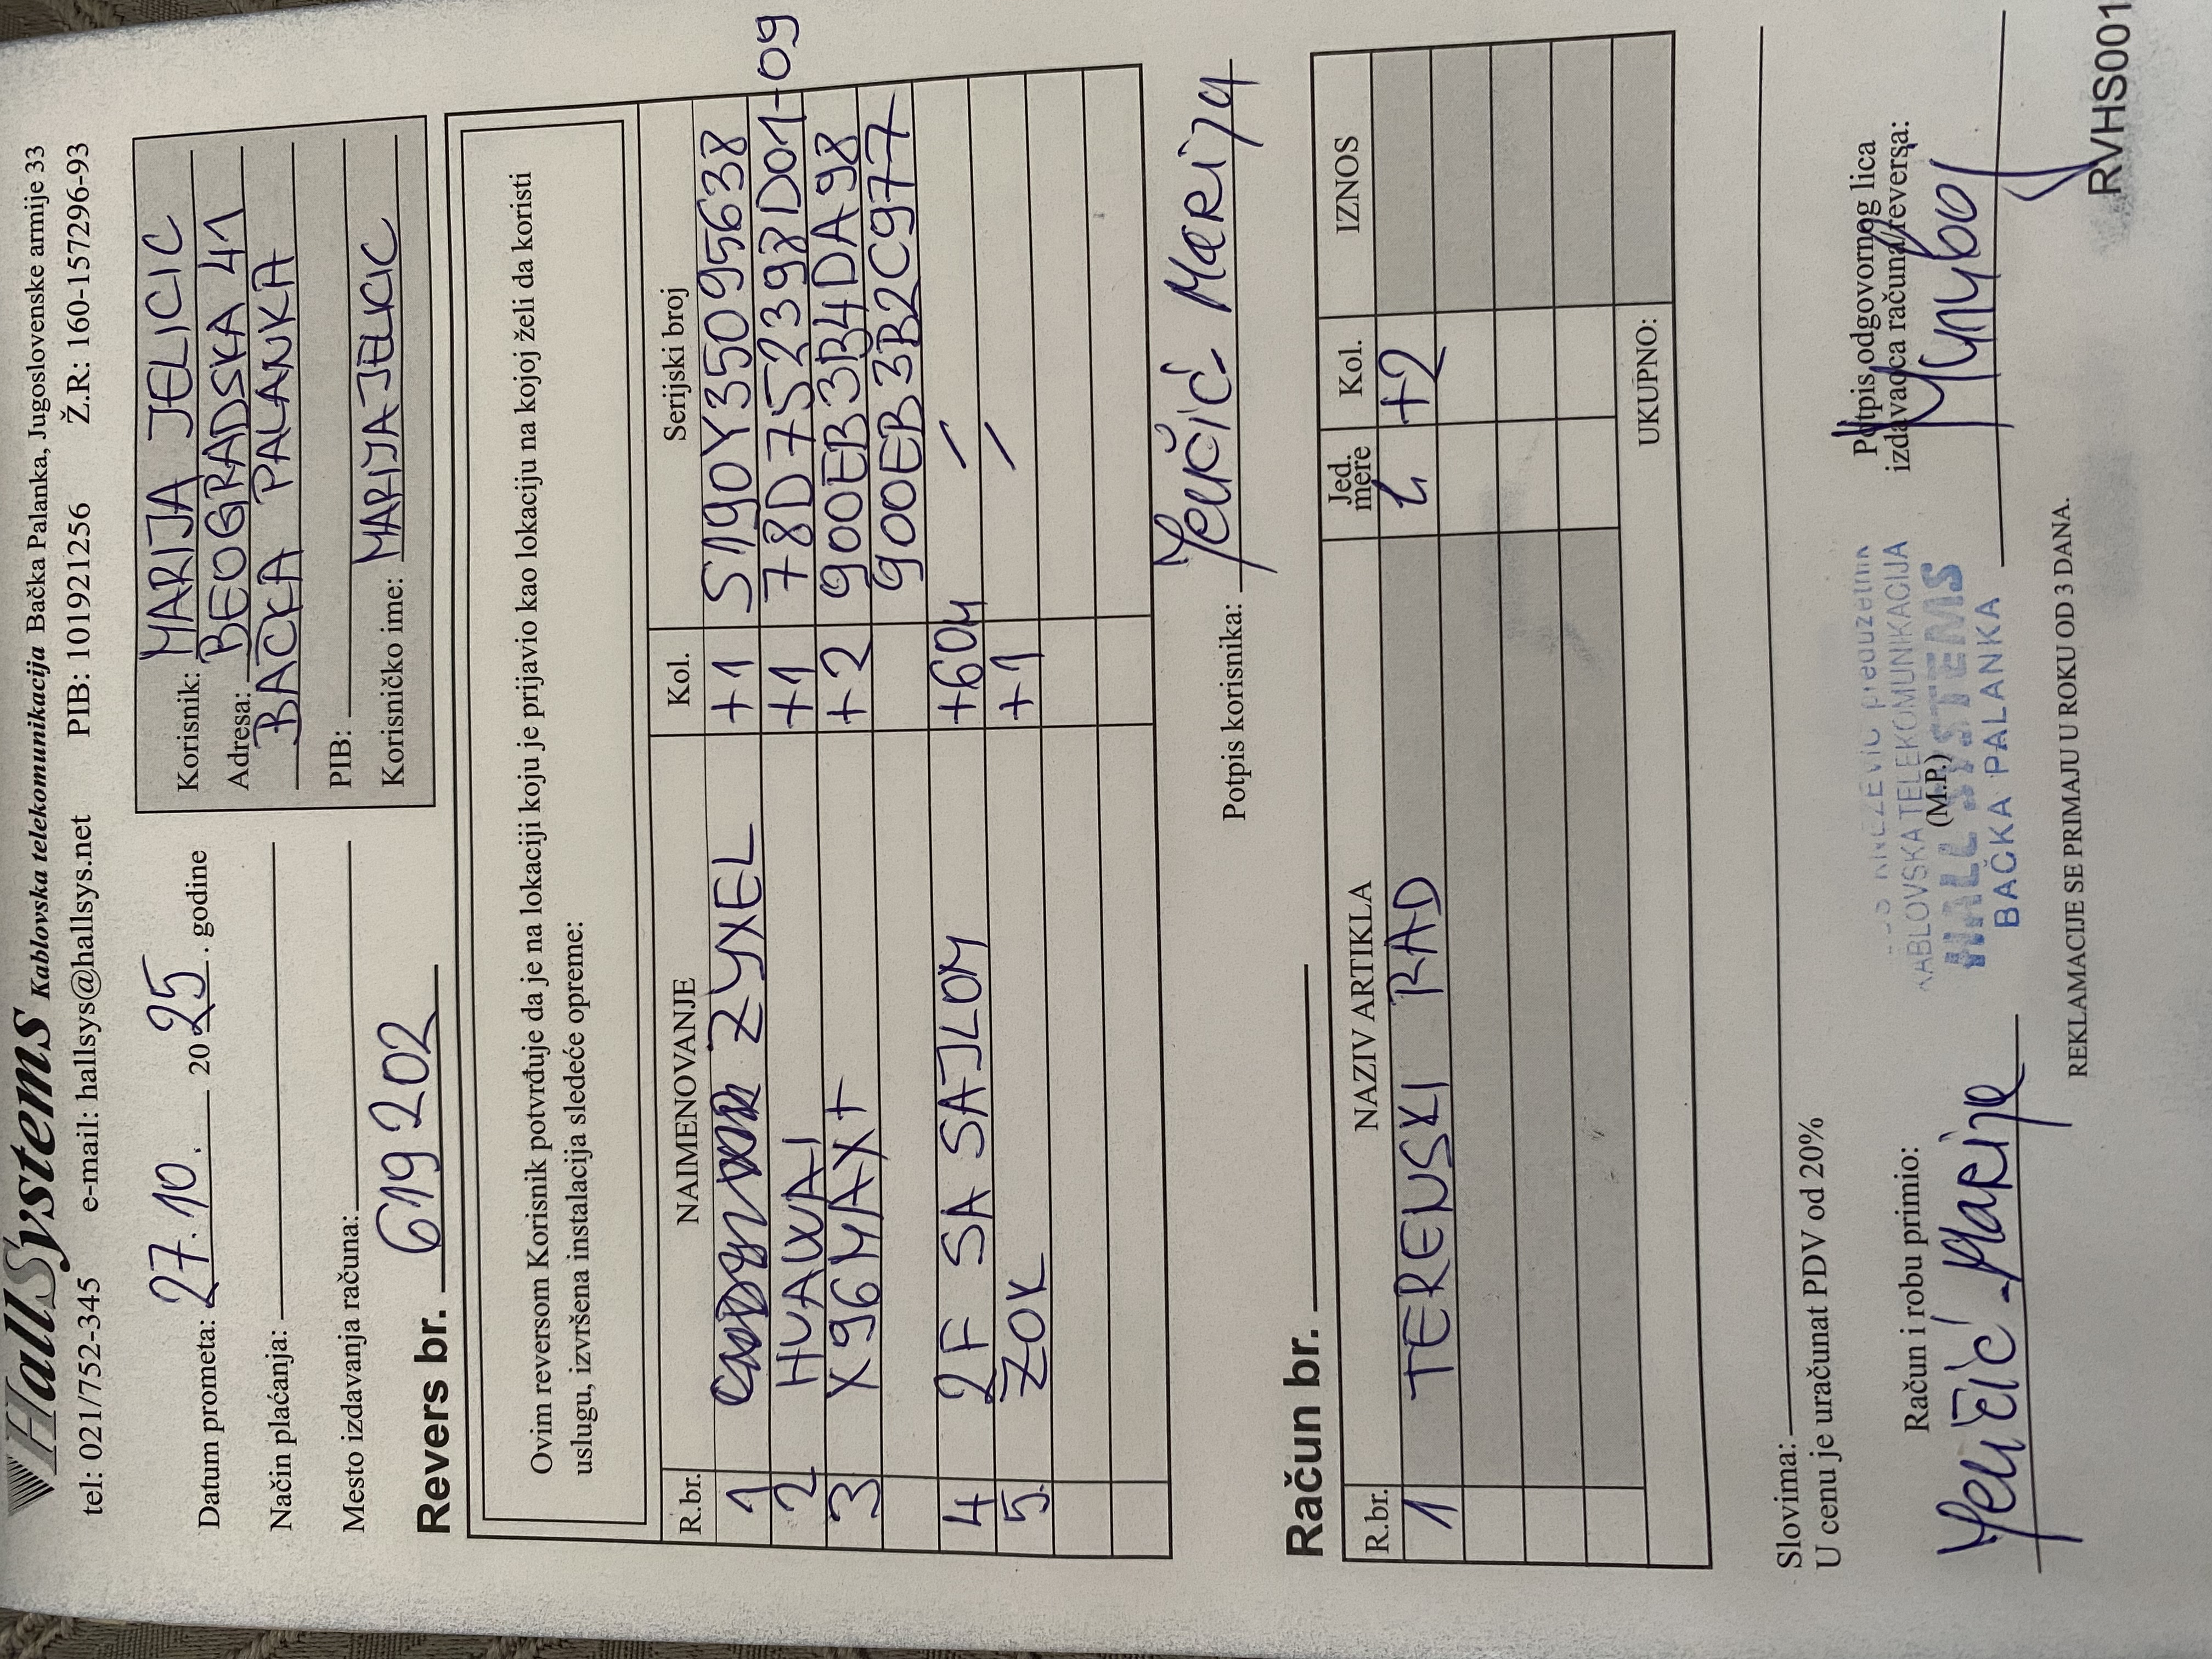 HallSystems Kablovska telekomunikacija Bačka Palanka, Jugoslovenske armije 33
tel: 021/752-345 e-mail: hallsys@hallsys.net PIB: 101921256 Ž.R: 160-157296-93
Datum prometa: 27.10. 2025. godine
Način plaćanja:
Mesto izdavanja računa:
Korisnik: MARIJA JELICIC
Adresa: BEOGRADSKA 41
BACKA PALANKA
PIB:
Korisničko ime: MARIJAJELICIC
Revers br. 619202
Ovim reversom Korisnik potvrđuje da je na lokaciji koju je prijavio kao lokaciju na kojoj želi da koristi
uslugu, izvršena instalacija sledeće opreme:
R.br. NAIMENOVANJE Kol. Serijski broj
1 ZYXEL +1 S190Y35095638
2 HUAWAI +1 78D752398D01-09
3 X96MAX+ +2 900EB3B4DA98
900EB3B2C977
4 2F SA SAJLOM +60M /
5. ZOK +1 /
Potpis korisnika: Јеличић Марија
Račun br.
R.br. NAZIV ARTIKLA Jed. mere Kol. IZNOS
1 TERENSKI RAD h +2
UKUPNO:
Slovima:
U cenu je uračunat PDV od 20%
Račun i robu primio:
Јеличић Марија
KABLOVSKA TELEKOMUNIKACIJA
HALL SYSTEMS
(M.P.)
BAČKA PALANKA
Potpis odgovornog lica
izdavaoca računa/reversa:
REKLAMACIJE SE PRIMAJU U ROKU OD 3 DANA.
RVHS001